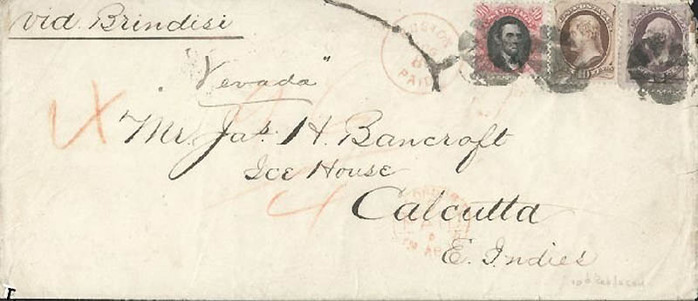 via Brindisi
"Nevada"
Mr. Jas. H. Bancroft
Ice House
Calcutta
E. Indies
PAID
90
90